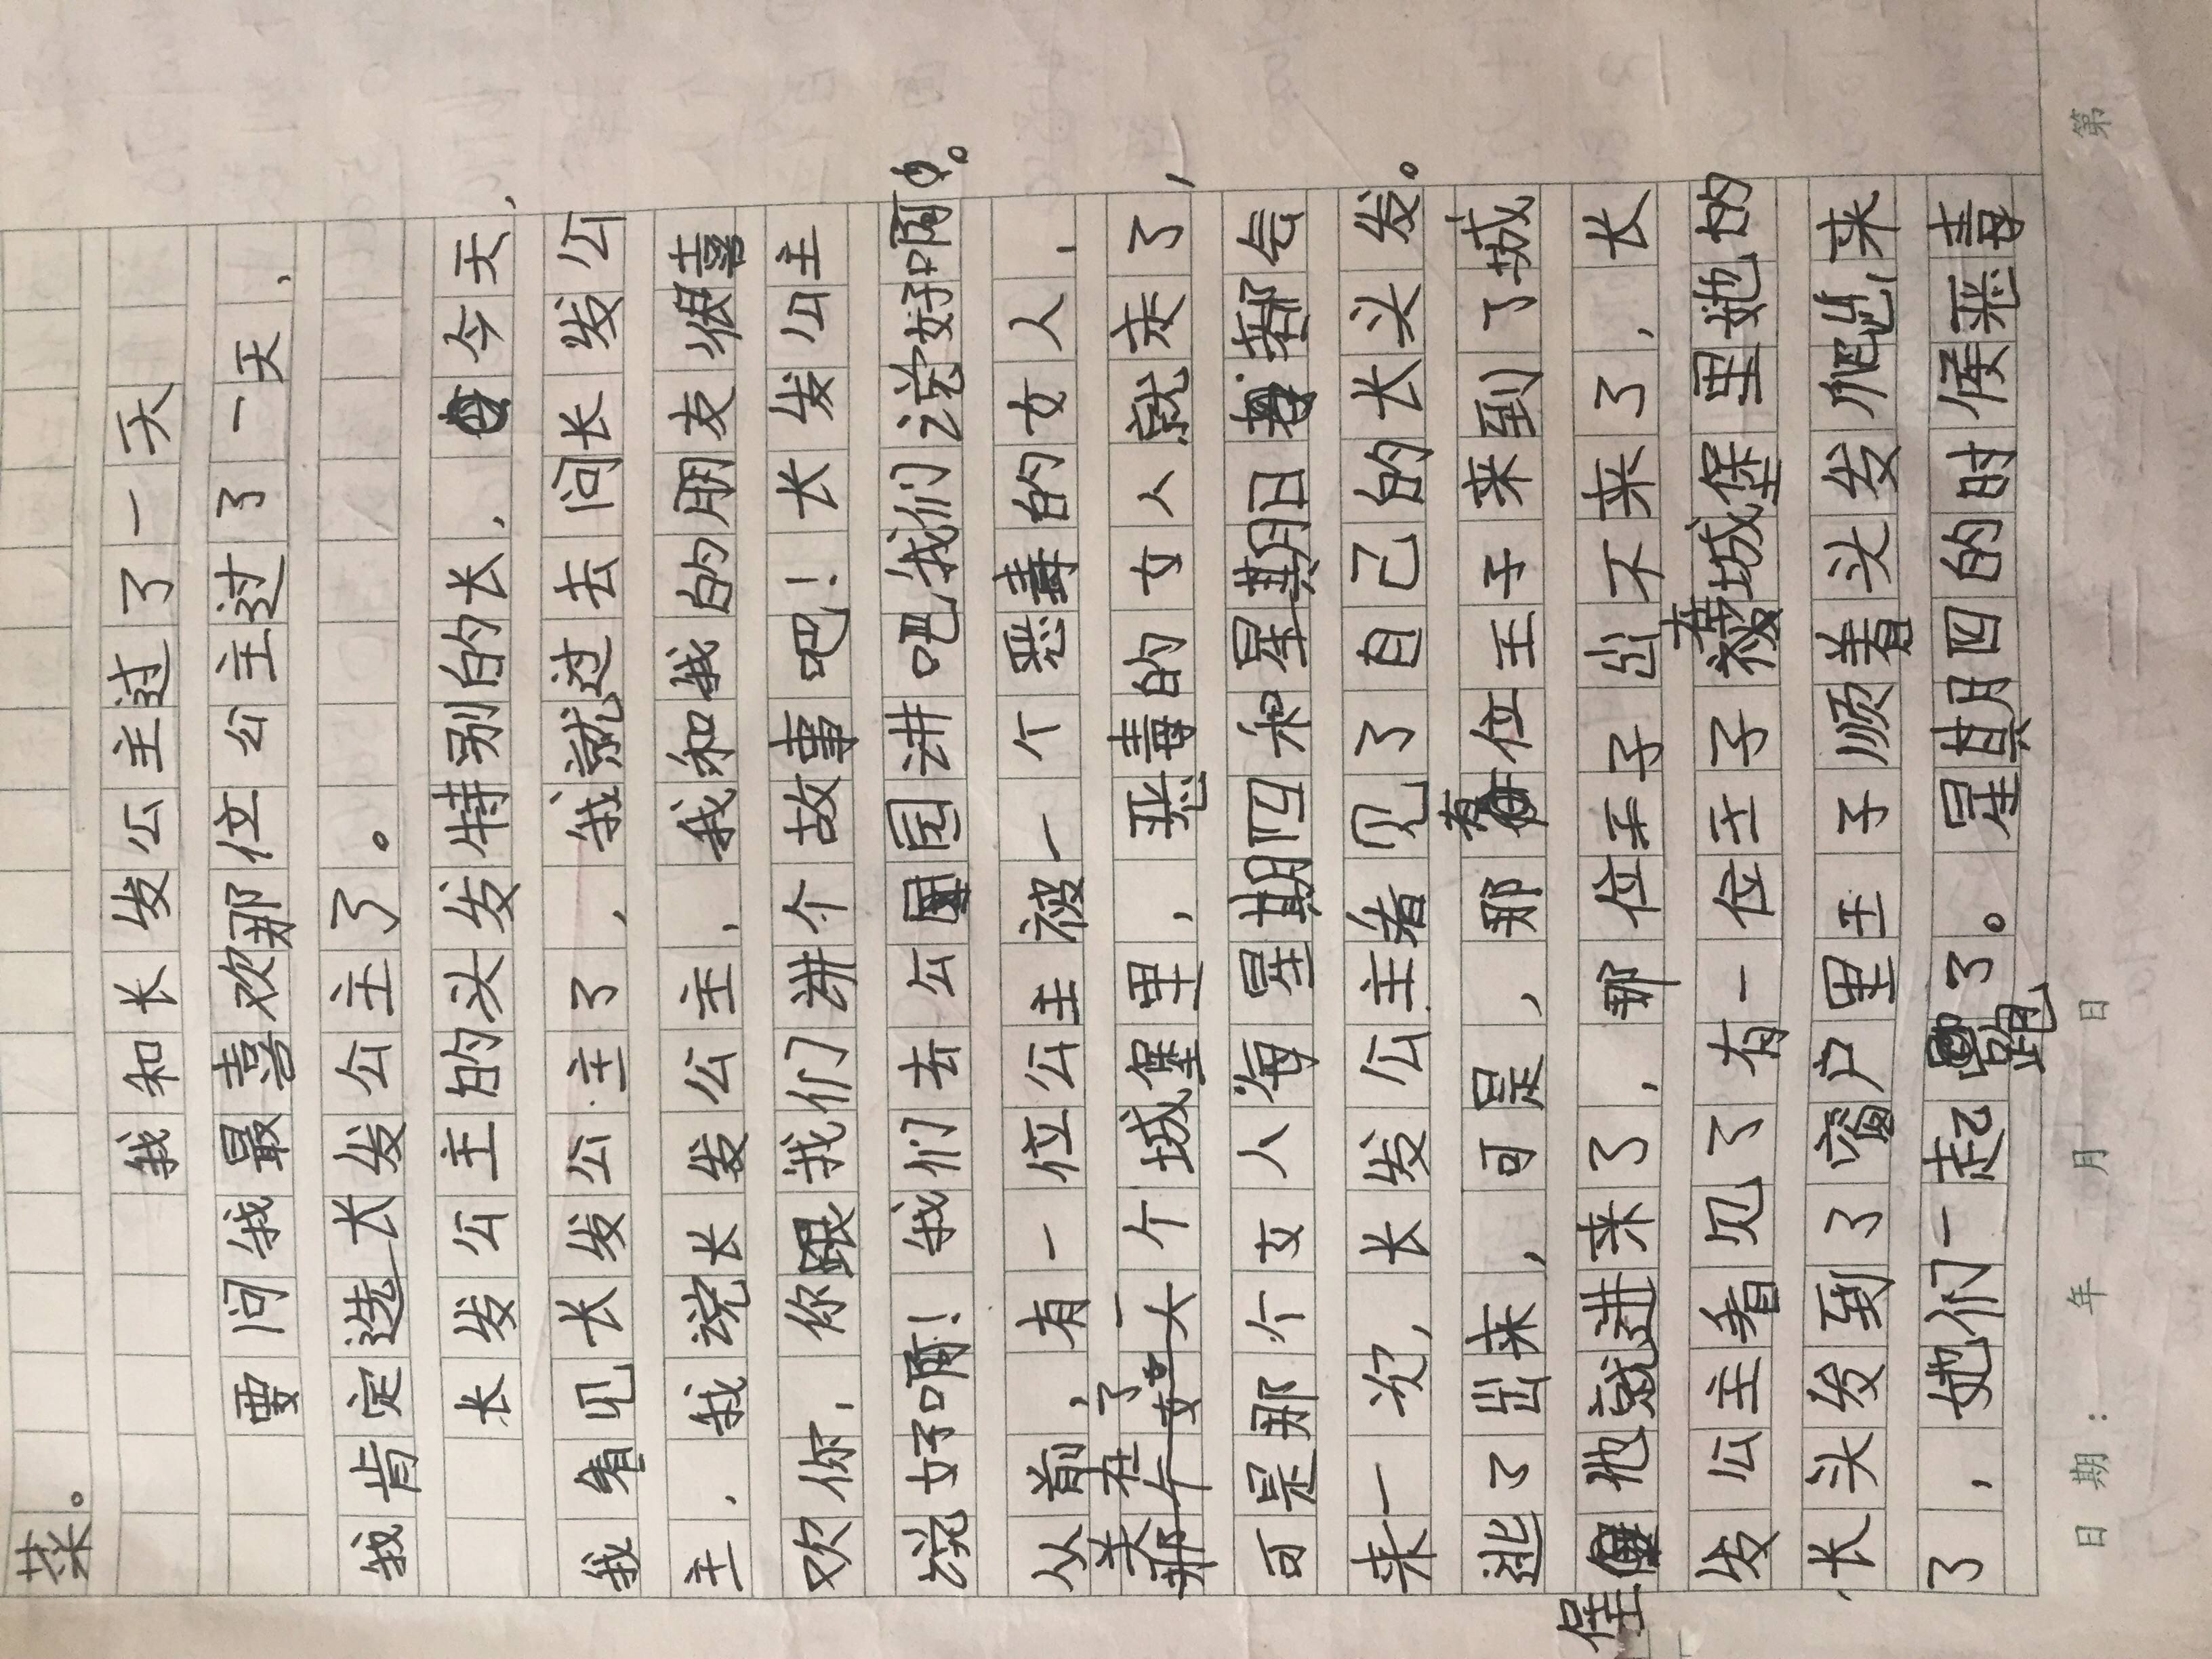 菜。
我和长发公主过了一天
要问我最喜欢那位公主过了一天,
我肯定选长发公主了。
长发公主的头发特别的长,今天,
我看见长发公主了,我就过去问长发公
主,我说长发公主,我和我的朋友很喜
欢你,你跟我们讲个故事吧!长发公主
说好啊!我们去公园讲吧我们说好啊。
从前,有一位公主被一个恶毒的女人,
关在了一个城堡里,恶毒的女人就走了,
可是那个女人每星期四和星期日都会
来一次,长发公主看见了自己的长头发。
逃了出来,可是,那有位王子来到了城
堡他就进来了,那位王子出不来了,长
发公主看见了有一位王子在城堡里她的
长头发到了窗户里王子顺着头发爬出来
了,她们一起跑了。星其月四的时候恶毒
日期: 年 月 日 第